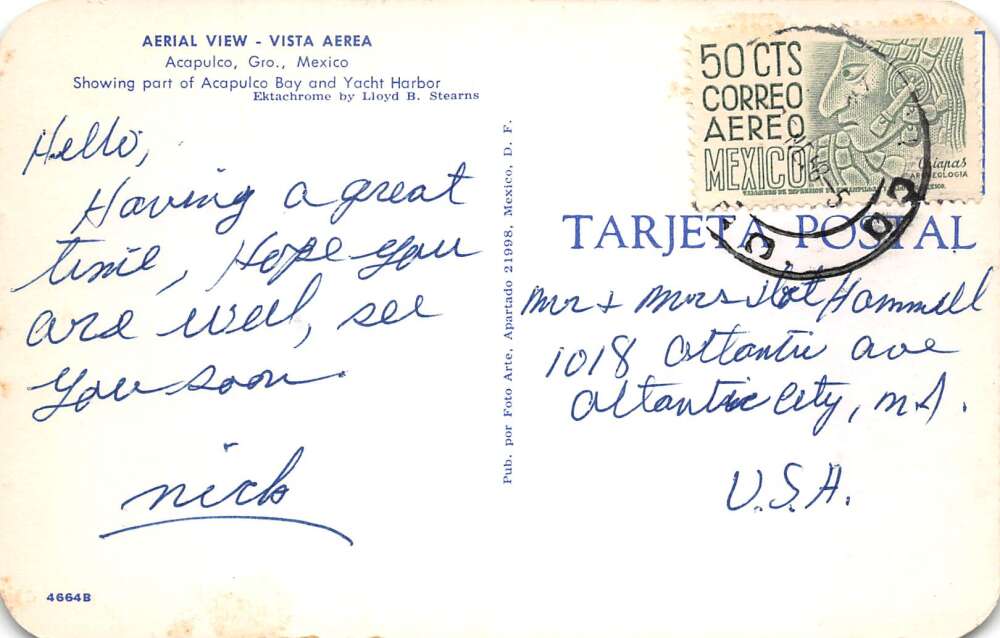 AERIAL VIEW - VISTA AEREA
Acapulco, Gro., Mexico
Showing part of Acapulco Bay and Yacht Harbor
Ektachrome by Lloyd B. Stearns
Hello,
Having a great
time, Hope you
are well, see
you soon.
nick
4664B
Pub. por Foto Arte, Apartado 21998, Mexico, D. F.
50 CTS
CORREO
AEREO
MEXICO
Chiapas
ARQUEOLOGIA
TARJETA POSTAL
Mr + Mrs Hammell
1018 Atlantic ave
Atlantic City, N.J.
U.S.A.